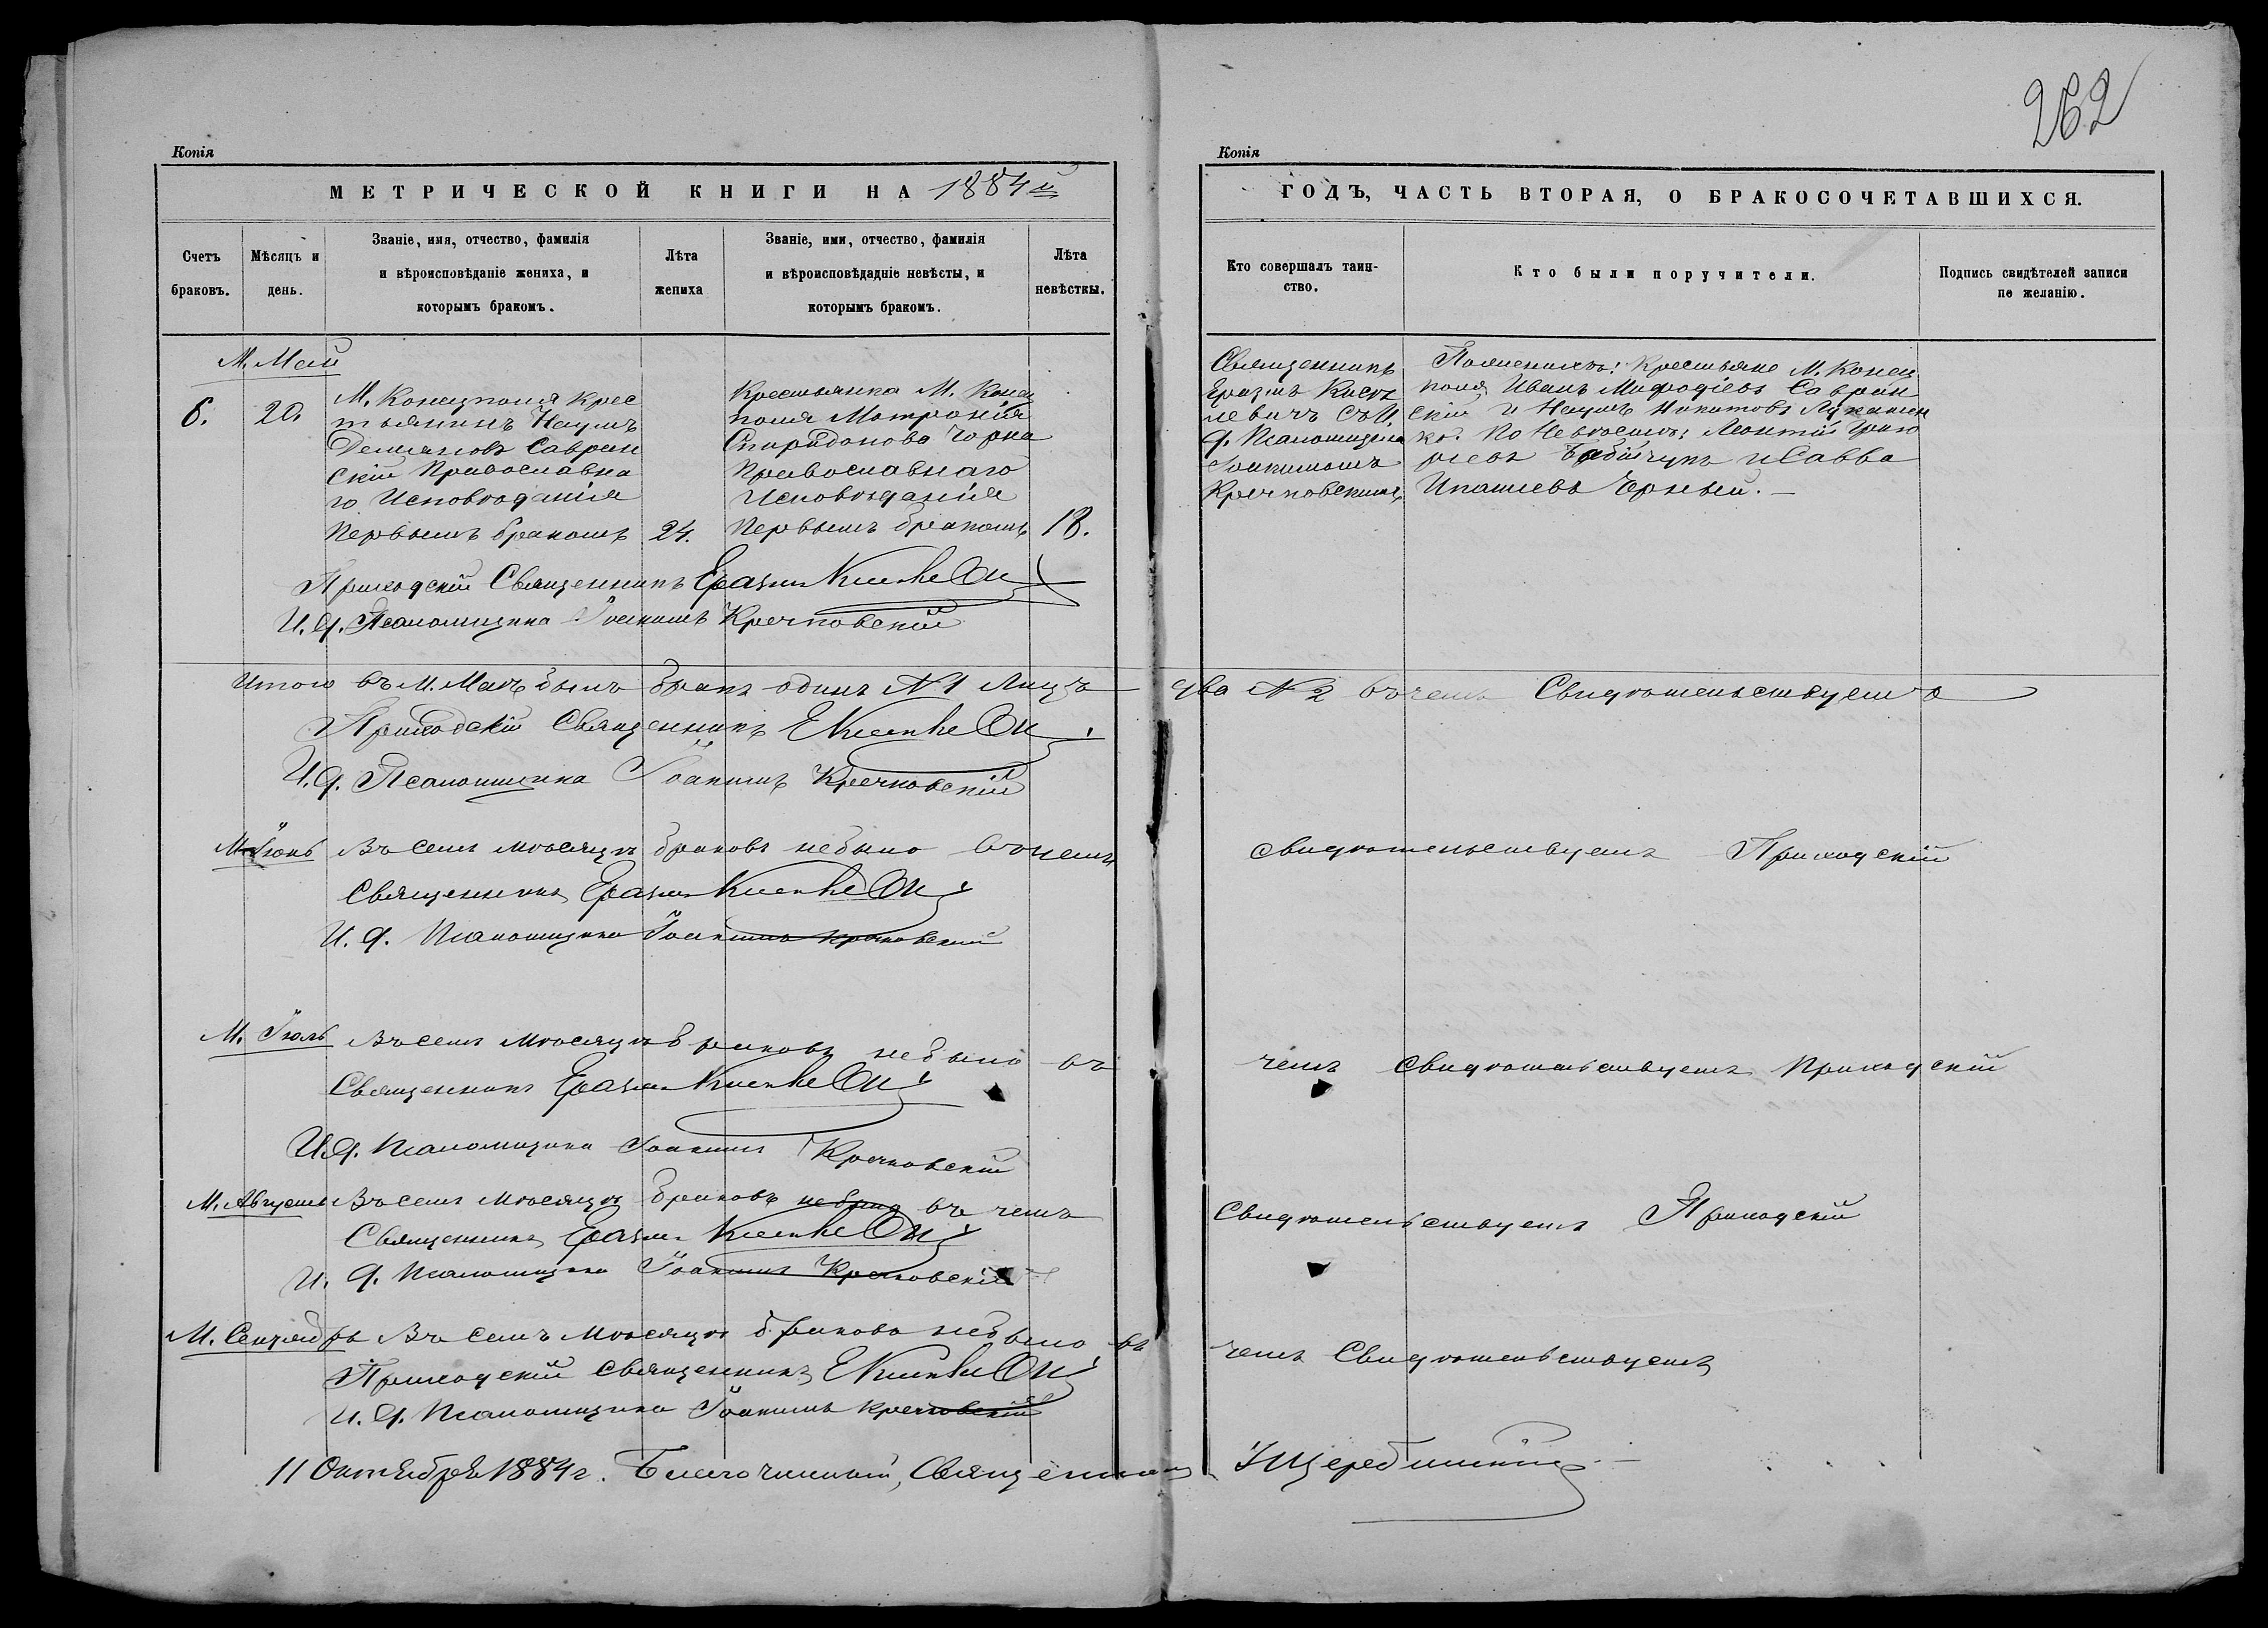 262
Копія
МЕТРИЧЕСКОЙ КНИГИ НА 1884й
Счетъ браковъ.
Мѣсяцъ и день.
Званіе, имя, отчество, фамилія
и вѣроисповѣданіе жениха, и
которымъ бракомъ.
Лѣта жениха
Званіе, ими, отчество, фамилія
и вѣроисповѣдадніе невѣсты, и
которымъ бракомъ.
Лѣта невѣсткы.
М. Май
6.
20.
М. Конецполя крес
тьянинъ Наумъ
Демьяновъ Савран
скій Православна
го Исповѣданія
первымъ бракомъ
24.
Крестьянка М. Конец
поля Матрона
Спиридонова Чорна
Православнаго
Исповѣданія
первымъ бракомъ
18.
Приходскій Священникъ Еразмъ
И. д. Псаломщика Іоакимъ Кречковскій
Итого въ М. Маѣ былъ бракъ одинъ № 1 Лицъ
Приходскій Священникъ
И. д. Псаломщика Іоакимъ Кречковскій
М. Іюнь Въ семъ мѣсяцѣ браковъ небыло въ чемъ
Священникъ Еразмъ
И. д. Псаломщика Іоакимъ Кречковскій
М. Іюль Въ семъ мѣсяцѣ браковъ небыло въ
Священникъ Еразмъ
И. д. Псаломщика Іоакимъ Кречковскій
М. Августъ Въ семъ мѣсяцѣ браковъ небыло въ чемъ
Священникъ Еразмъ
И. д. Псаломщика Іоакимъ Кречковскій
М. Сентябрь Въ семъ мѣсяцѣ браковъ небыло въ
Приходскій священникъ
И. д. Псаломщика Іоакимъ Кречковскій
11 Октября 1884 г. Благочинный, Священникъ
Копія
ГОДЪ, ЧАСТЬ ВТОРАЯ, О БРАКОСОЧЕТАВШИХСЯ.
Кто совершалъ таин-
ство.
Кто были поручители.
Подпись свидѣтелей записи
по желанію.
Священникъ
Еразмъ
левичъ съ И.
д. Псаломщика
Іоакимомъ
Кречковскимъ
По женихѣ: крестьяне М. Конец
поля Иванъ Мифодіевъ Савран
скій и Наумъ Никитовъ Лукашен
ко. По Невѣстѣ: Леонтій Григо
рьевъ Бабійчукъ и Савва
Ипатіевъ Чорный.
два № 2 въ чемъ Свидѣтельствуемъ
свидѣтельствуемъ Приходскій
чемъ свидѣтельствуемъ Приходскій
свидѣтельствуемъ Приходскій
чемъ Свидѣтельствуемъ